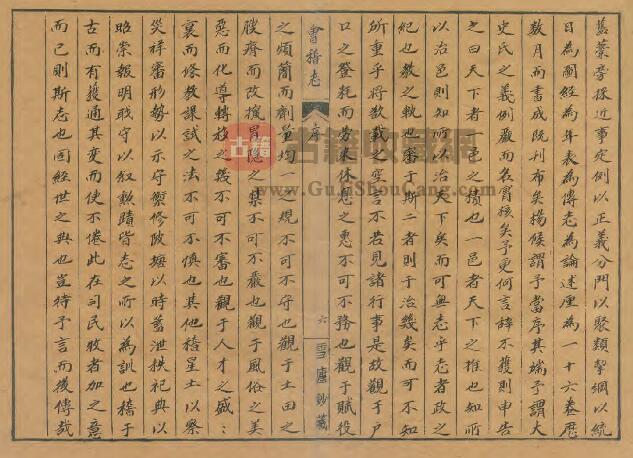 旧藁旁採近事定例以正義分門以聚類挈綱以統
目為圖經為年表為傳志為論述厘為一十六卷歷
数月而書成既刊布矣楊候謂予當序其端予謂大
史氏之義例嚴而名實核矣予更何言辞不獲則申告
之曰天下者一邑之積也一邑者天下之推也知所
以治邑則知所以治天下矣而可無志乎志者政之
紀也教之軌也審于斯二者則于治幾矣而可不知
所重乎将数載之空言不若見諸行事是故觀于户
口之登耗而勞来休息之惠不可不務也觀于賦役
會稽志 序 六 雪廬鈔藏
之煩簡而劑量均一之規不可不守也觀于土田之
膄瘠而改擅冒隐之禁不可不嚴也觀于風俗之美
惡而化導轉移之幾不可不審也觀于人才之盛
衰而條教課試之法不可不慎也其他稽星土以察
災祥審形勢以示守禦修陂塘以時蓄泄秩祀典以
昭崇報明職守以叙勲蹟皆志之所以為訓也稽于
古而有獲通其變而使不倦此在司民牧者加之意
而已則斯志也固經世之典也豈待予言而後傳哉
古籍收藏網
www.GuJiShouCang.com